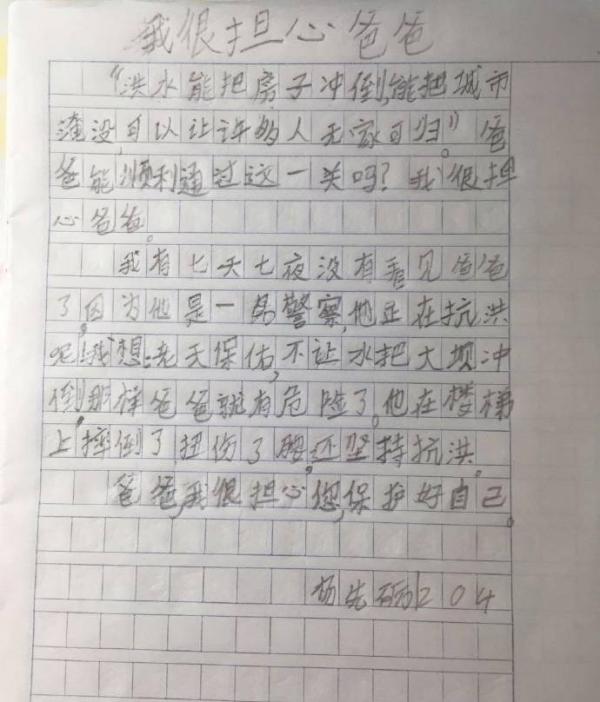 我很担心爸爸
“洪水能把房子冲倒,能把城市
淹没,可以让许多人无家可归。”爸
爸能顺利通过这一关吗?我很担
心爸爸。
我有七天七夜没有看见爸爸
了,因为他是一名警察,他正在抗洪
呢!我想:老天保佑,不让水把大坝冲
倒,那样爸爸就有危险了。他在楼梯
上摔倒了扭伤了腰,还坚持抗洪。
爸爸,我很担心您,保护好自己。
杨先 204